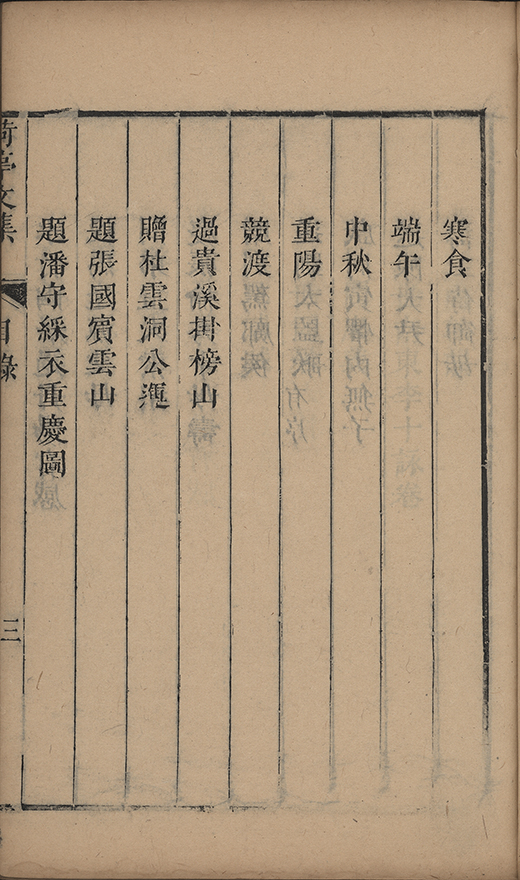 寒食
端午
中秋
重陽
競渡
過貴溪掛榜山
贈杜雲洞公運
題張國賓雲山
題潘守綵衣重慶圖
亭文集 目錄 三